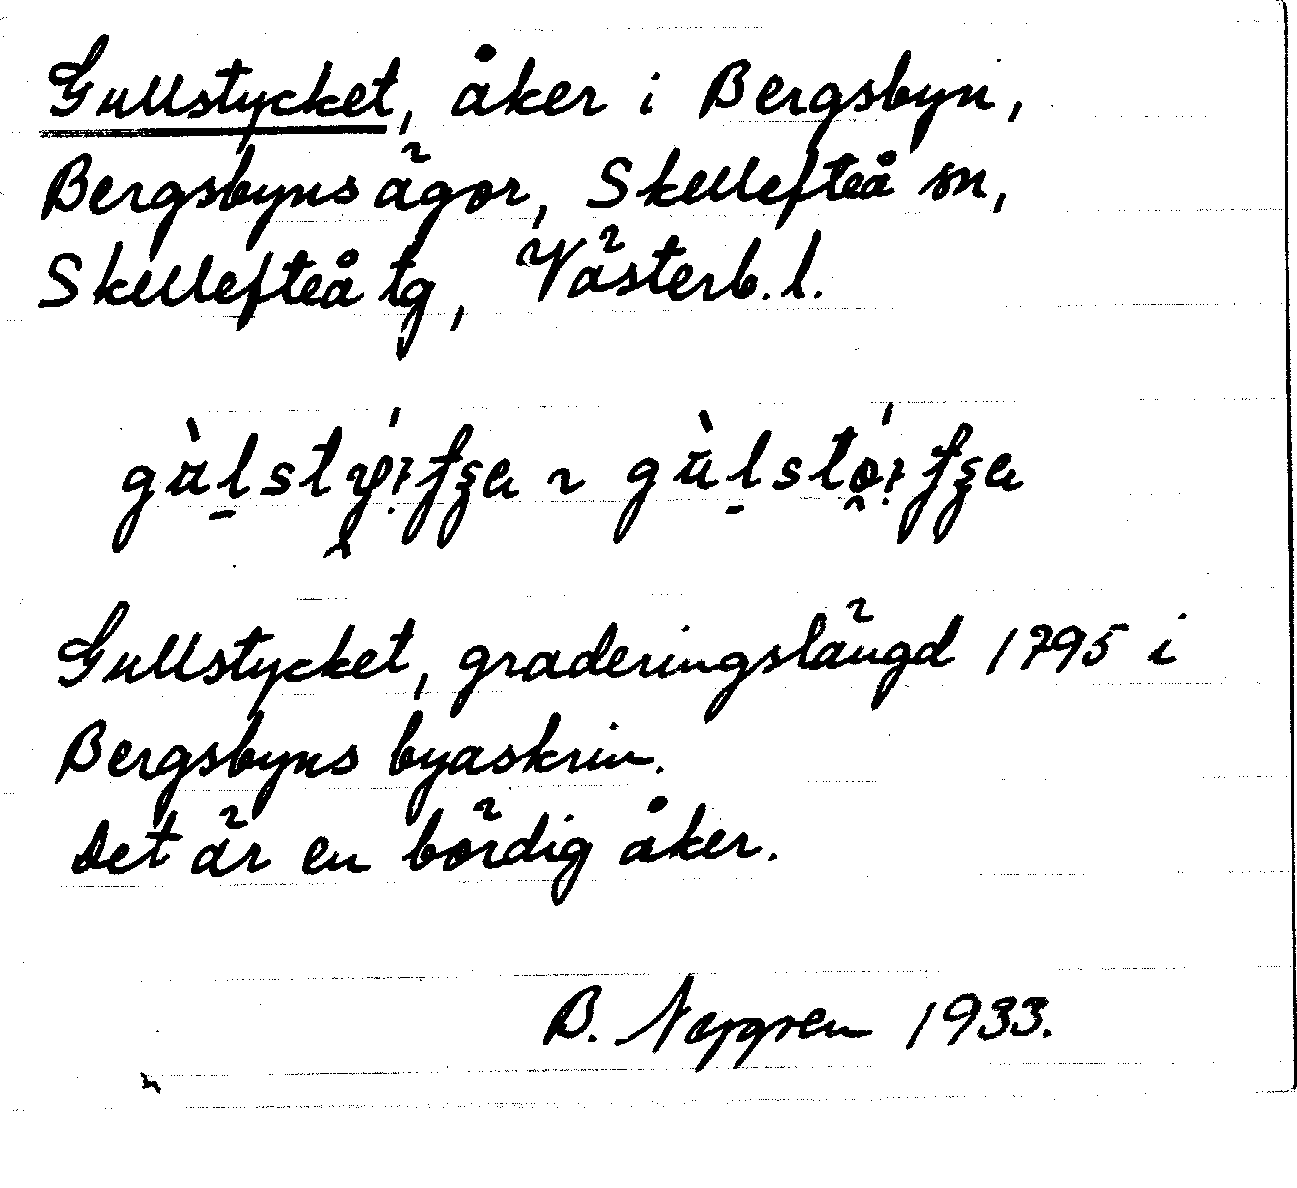 Gullstycket, åker i Bergsbyn,
Bergsbyns ägor, Skellefteå sn,
Skellefteå tg, Västerb. l.
Gullstycket, graderingslängd 1795 i
Bergsbyns byaskrin.
Det är en bördig åker.
B. Nygren 1933.